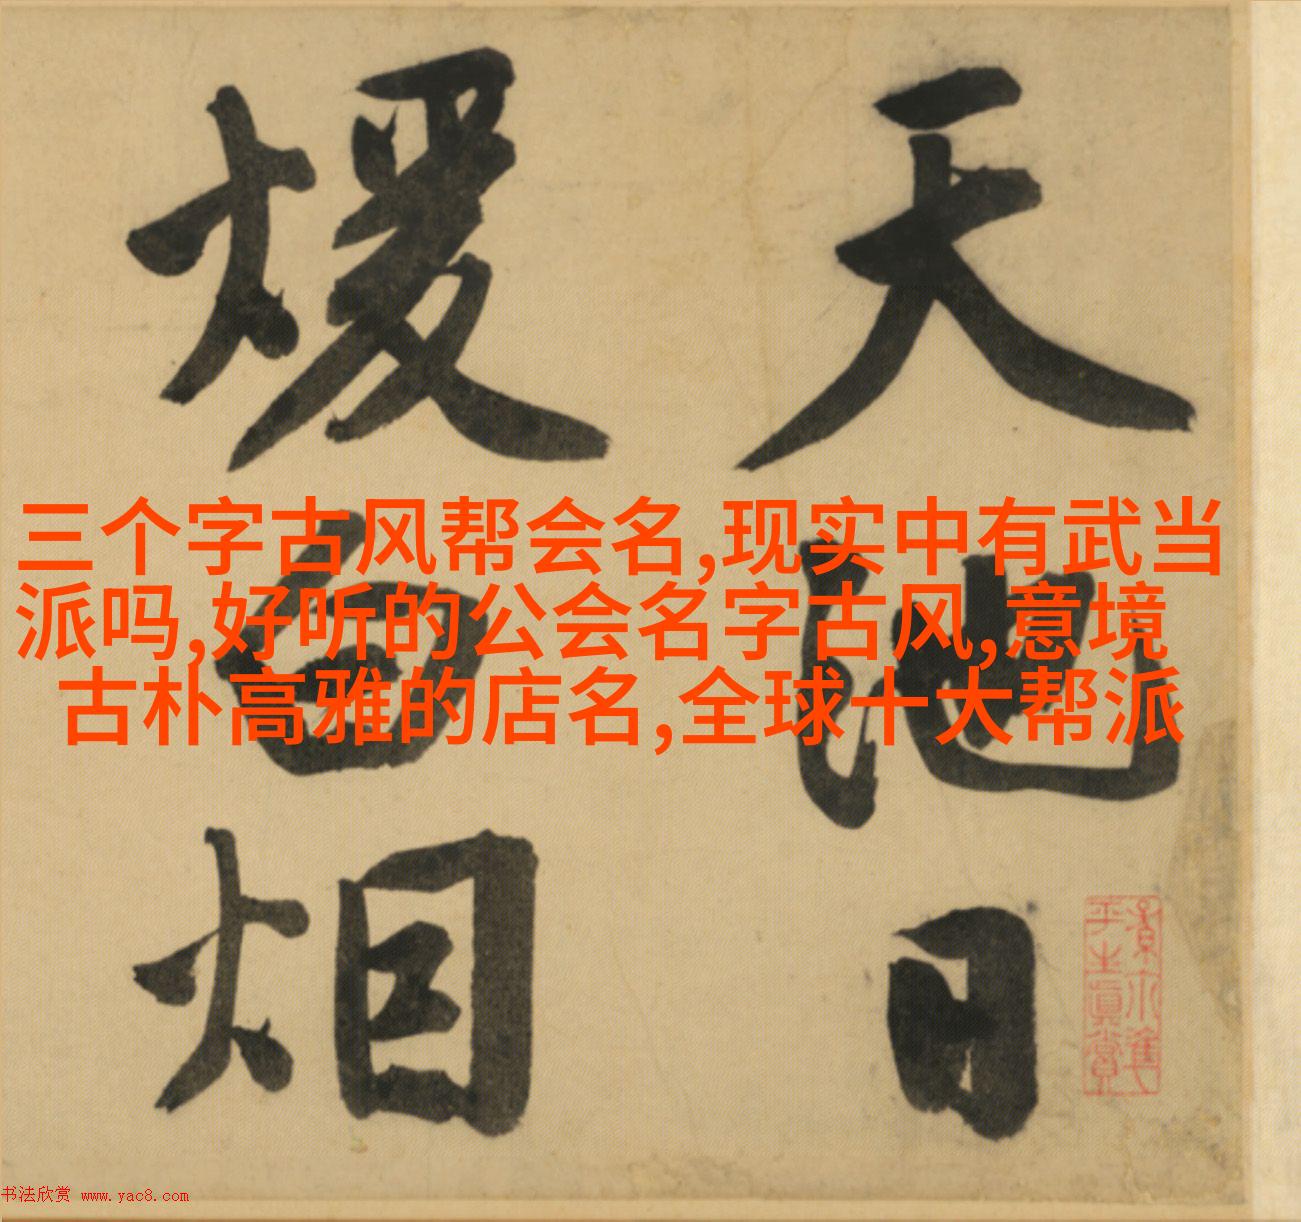 天池日
煖白烟
三个字古风帮会名,现实中有武当
派吗,好听的公会名字古风,意境
古朴高雅的店名,全球十大帮派
平生真賞
书法欣赏 www.yac8.com